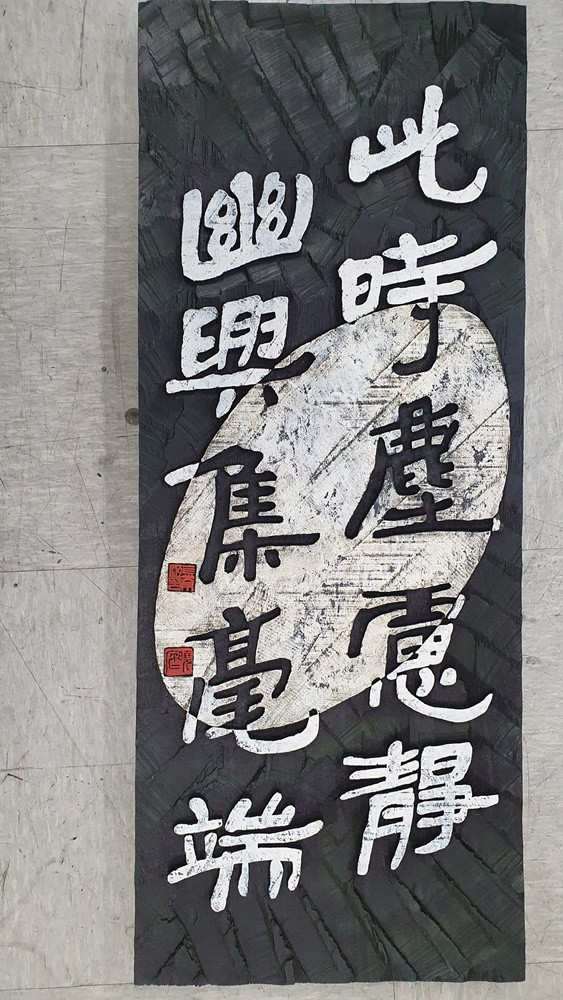 此時塵慮靜
幽興集毫端